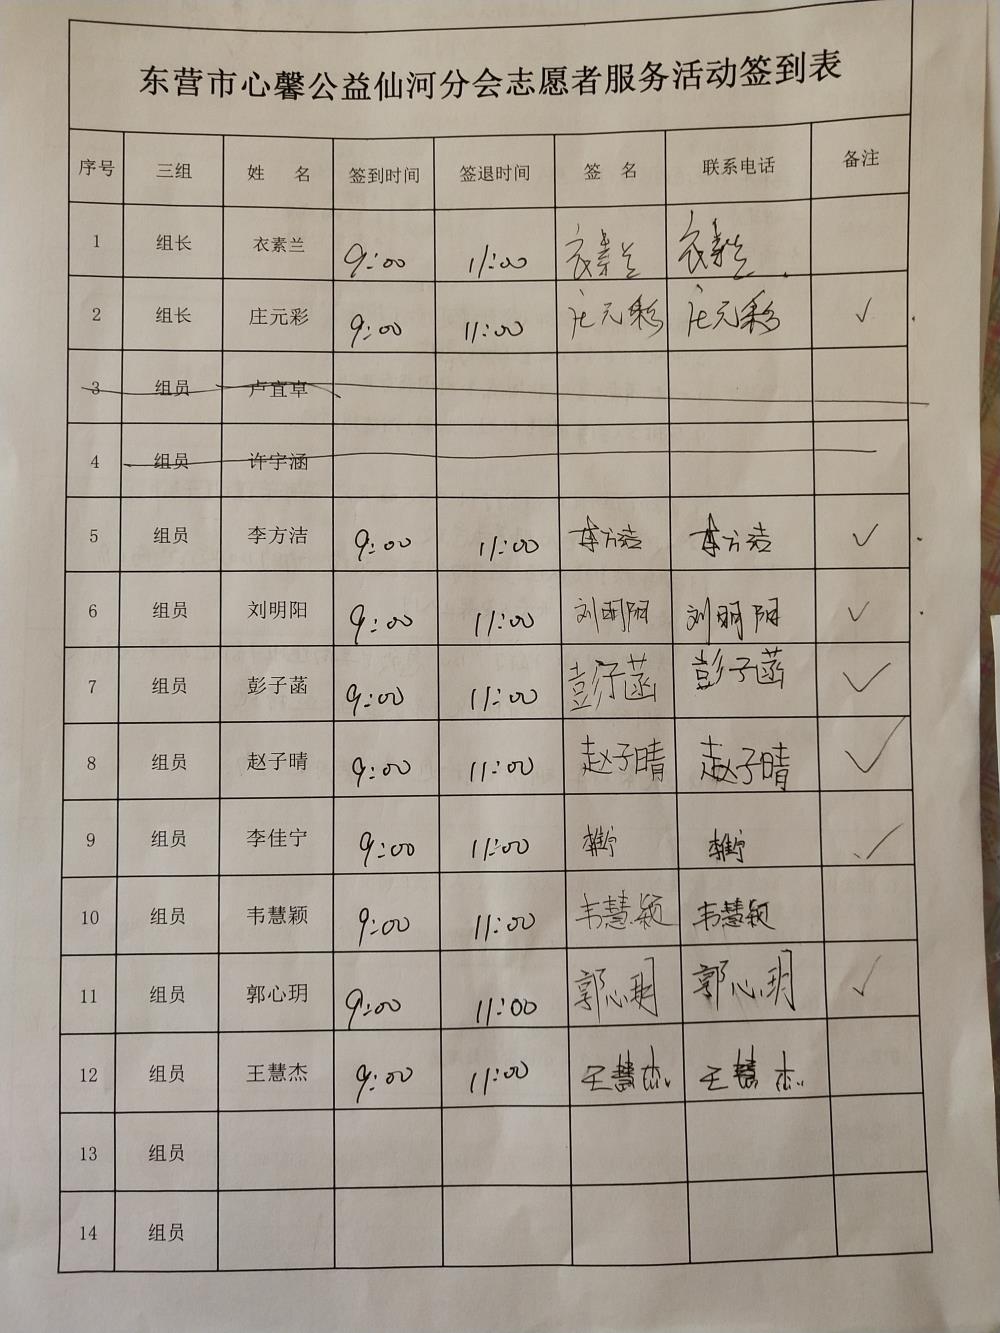 东营市心馨公益仙河分会志愿者服务活动签到表
序号 三组 姓 名 签到时间 签退时间 签 名 联系电话 备注
1 组长 衣素兰 9:00 11:00 衣素兰 衣素兰
2 组长 庄元彩 9:00 11:00 庄元彩 庄元彩 ✓
3 组员 卢宜卓
4 组员 许宇涵
5 组员 李方洁 9:00 11:00 李方洁 李方洁 ✓
6 组员 刘明阳 9:00 11:00 刘明阳 刘明阳 ✓
7 组员 彭子菡 9:00 11:00 彭子菡 彭子菡 ✓
8 组员 赵子晴 9:00 11:00 赵子晴 赵子晴 ✓
9 组员 李佳宁 9:00 11:00 李佳宁 李佳宁 ✓
10 组员 韦慧颖 9:00 11:00 韦慧颖 韦慧颖
11 组员 郭心玥 9:00 11:00 郭心玥 郭心玥 ✓
12 组员 王慧杰 9:00 11:00 王慧杰 王慧杰
13 组员
14 组员